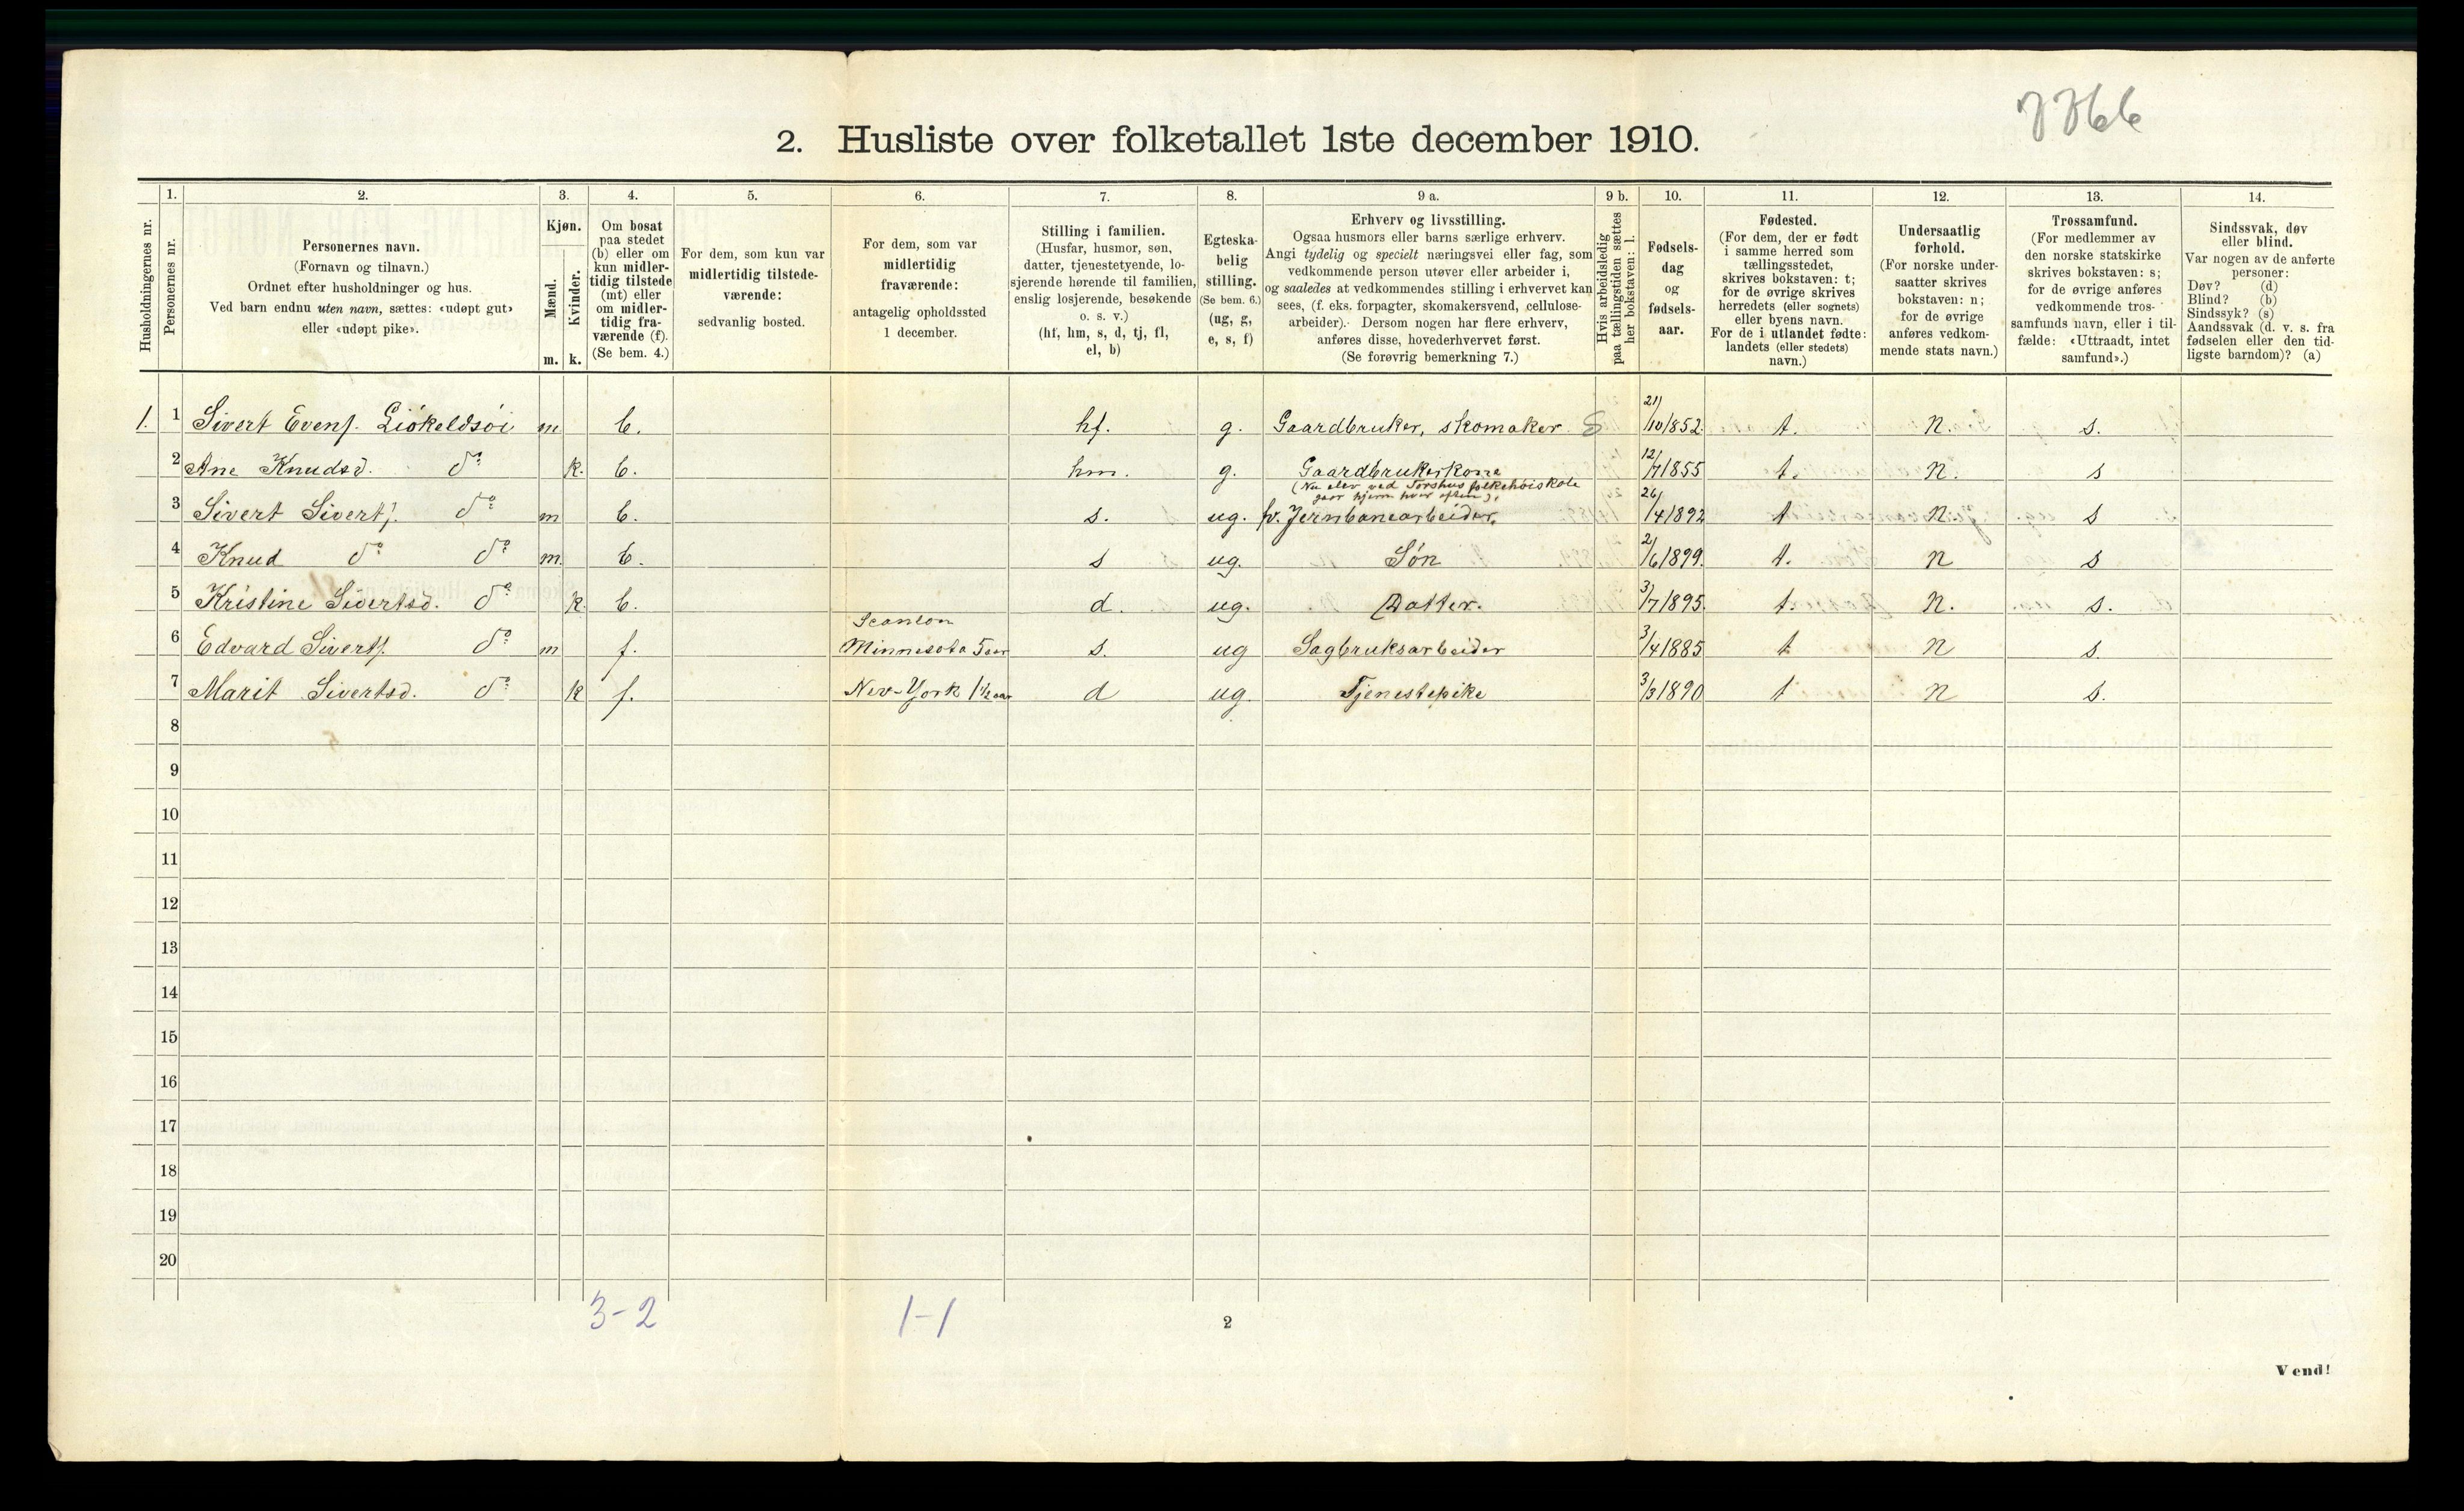 7766
2. Husliste over folketallet 1ste december 1910.
Husholdningernes nr.
1. Personernes nr.
2. Personernes navn.
(Fornavn og tilnavn.)
Ordnet efter husholdninger og hus.
Ved barn endnu uten navn, sættes: «udøpt gut»
eller «udøpt pike».
3. Kjøn.
Mænd. m.
Kvinder. k.
4. Om bosat
paa stedet
(b) eller om
kun midler-
tidig tilstede
(mt) eller
om midler-
tidig fra-
værende (f).
(Se bem. 4.)
5. For dem, som kun var
midlertidig tilstede-
værende:
sedvanlig bosted.
6. For dem, som var
midlertidig
fraværende:
antagelig opholdssted
1 december.
7. Stilling i familien.
(Husfar, husmor, søn,
datter, tjenestetyende, lo-
sjerende hørende til familien,
enslig losjerende, besøkende
o. s. v.)
(hf, hm, s, d, tj, fl,
el, b)
8. Egteska-
belig
stilling.
(Se bem. 6.)
(ug, g,
e, s, f)
9 a. Erhverv og livsstilling.
Ogsaa husmors eller barns særlige erhverv.
Angi tydelig og specielt næringsvei eller fag, som
vedkommende person utøver eller arbeider i,
og saaledes at vedkommendes stilling i erhvervet kan
sees, (f. eks. forpagter, skomakersvend, cellulose-
arbeider). Dersom nogen har flere erhverv,
anføres disse, hovederhvervet først.
(Se forøvrig bemerkning 7.)
9 b. Hvis arbeidsledig
paa tællingstiden sættes
her bokstaven: l.
10. Fødsels-
dag
og
fødsels-
aar.
11. Fødested.
(For dem, der er født
i samme herred som
tællingsstedet,
skrives bokstaven: t;
for de øvrige skrives
herredets (eller sognets)
eller byens navn.
For de i utlandet fødte:
landets (eller stedets)
navn.)
12. Undersaatlig
forhold.
(For norske under-
saatter skrives
bokstaven: n;
for de øvrige
anføres vedkom-
mende stats navn.)
13. Trossamfund.
(For medlemmer av
den norske statskirke
skrives bokstaven: s;
for de øvrige anføres
vedkommende tros-
samfunds navn, eller i til-
fælde: «Uttraadt, intet
samfund».)
14. Sindssvak, døv
eller blind.
Var nogen av de anførte
personer:
Døv? (d)
Blind? (b)
Sindssyk? (s)
Aandssvak (d. v. s. fra
fødselen eller den tid-
ligste barndom)? (a)
1. 1 Sivert Evens. Liökeldsöi m b. hf. g. Gaardbruker, skomaker S 21/10 1852 t. n. s.
2 Ane Knudsd. do k. b. hm. g. Gaardbrukerkone 12/7 1855 t. n. s
(Nu elev ved Torshus folkehöiskole
gaar hjem hver aften).
3 Sivert Siverts. do m b. s. ug. fv. Jernbanearbeider. 26/4 1892 t n. s
4 Knud do do m. b. s ug. Søn 2/6 1899. t. n s
5 Kristine Sivertsd. do k. b. d. ug. Datter. 3/7 1895. t. n. s.
Scanlon
6 Edvard Siverts. do m f. Minnesota 5 aar s. ug Sagbruksarbeider 3/4 1885 t n s.
7 Marit Sivertsd. do k f. Nev-York 1 1/2 aar d ug. Tjenestepike 3/3 1890 t n s.
8
9
10
11
12
13
14
15
16
17
18
19
20
3-2 1-1
2
Vend!